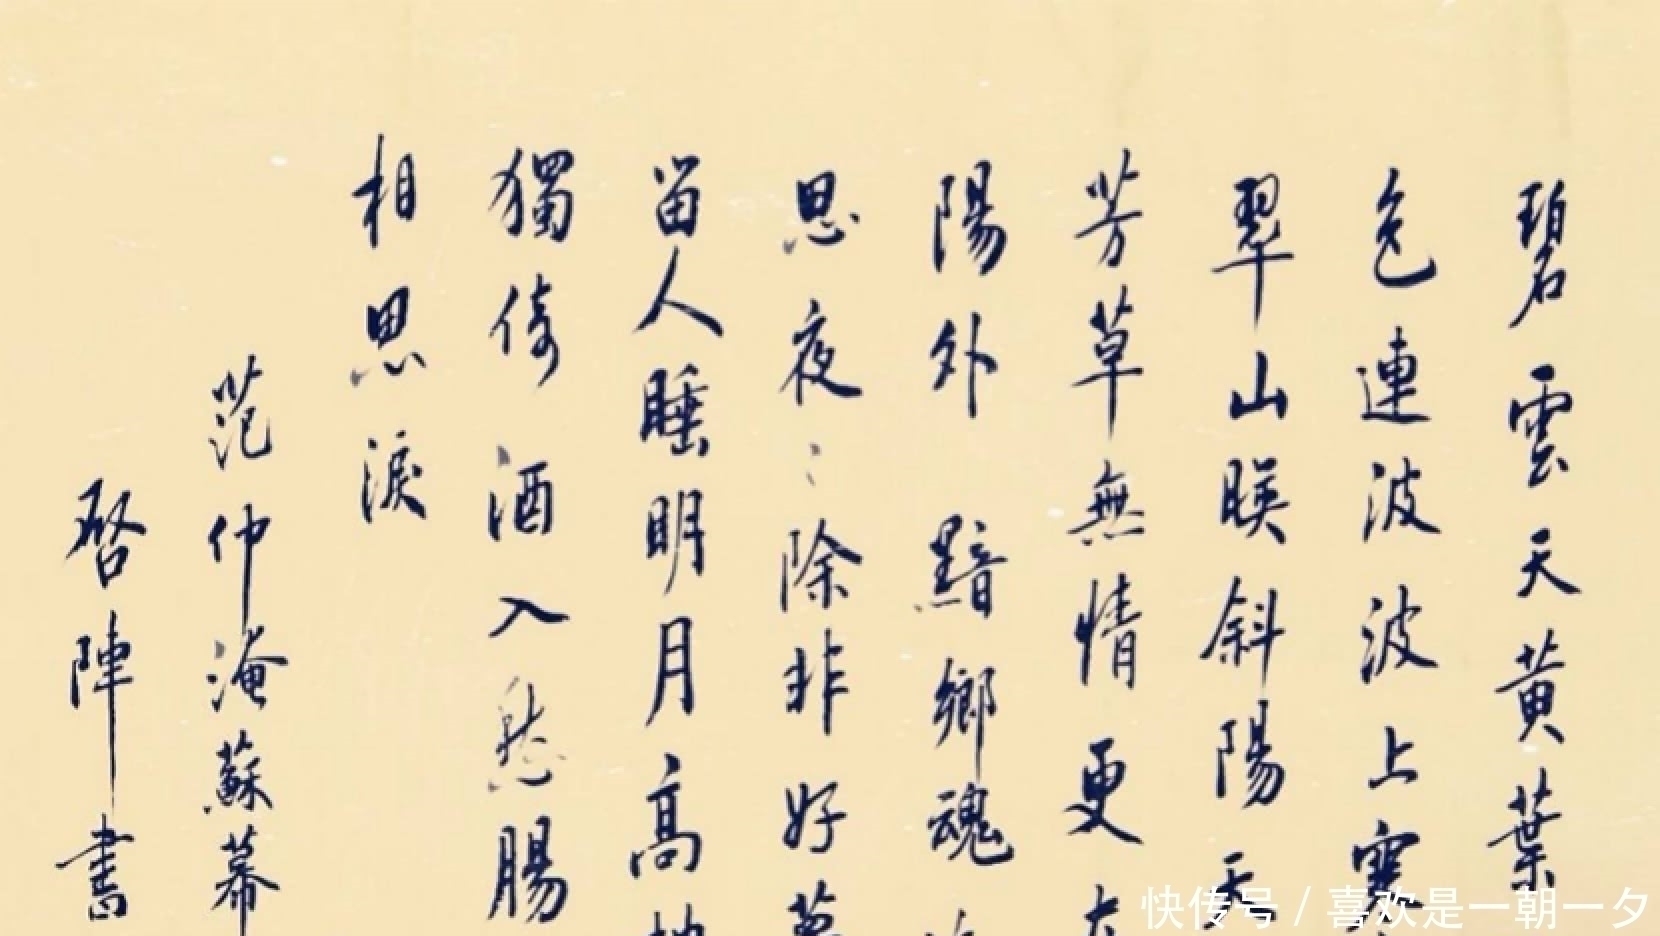 碧雲天黄葉
色連波波上寒
翠山映斜陽天
芳草無情更
陽外 黯鄉魂
思夜〻除非好夢
留人睡明月高
獨倚 酒入愁腸
相思淚
范仲淹蘇幕
启陣書
快传号/喜欢是一朝一夕